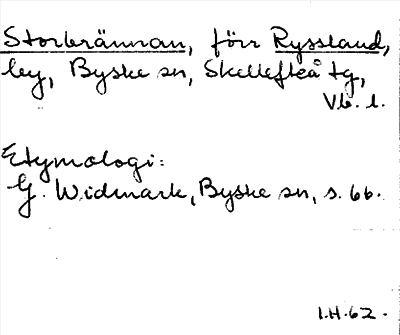 Storbrännan, förr Ryssland,
by, Byske sn, Skellefteå tg,
Vb. l.
Etymologi:
G. Widmark, Byske sn, s. 66.
I.H.62.